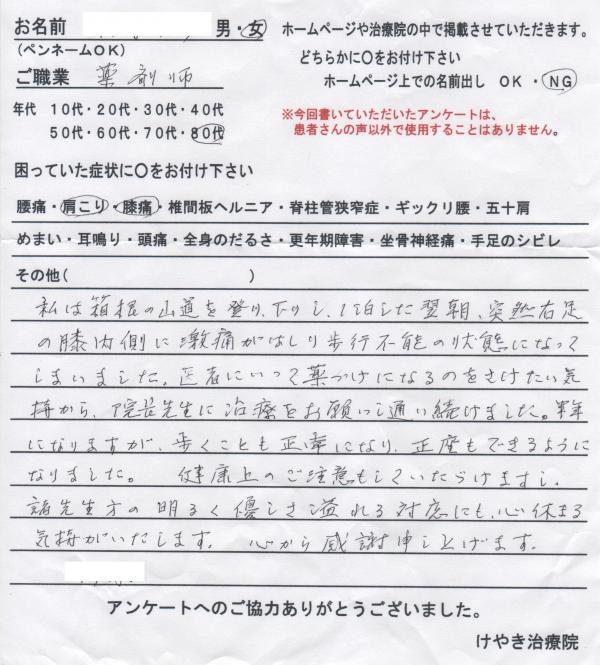 お名前 男・女
(ペンネームOK)
ご職業 薬剤師
年代 10代・20代・30代・40代
50代・60代・70代・80代
ホームページや治療院の中で掲載させていただきます。
どちらかに〇をお付け下さい
ホームページ上での名前出し OK・NG
※今回書いていただいたアンケートは、
患者さんの声以外で使用することはありません。
困っていた症状に〇をお付け下さい
腰痛・肩こり・膝痛・椎間板ヘルニア・脊柱管狭窄症・ギックリ腰・五十肩
めまい・耳鳴り・頭痛・全身のだるさ・更年期障害・坐骨神経痛・手足のシビレ
その他( )
私は箱根の山道を登り、下りし、1泊した翌朝、突然右足
の膝内側に激痛がはしり歩行不能の状態になって
しまいました。医者にいって薬づけになるのをさけたい気
持から、院長先生に治療をお願いし通い続けました。半年
になりますが、歩くことも正常になり、正座もできるように
なりました。 健康上のご注意もしていただけますし、
諸先生方の明るく優しさ溢れる対応にも、心休まる
気持がいたします。 心から感謝申し上げます。
アンケートへのご協力ありがとうございました。
けやき治療院